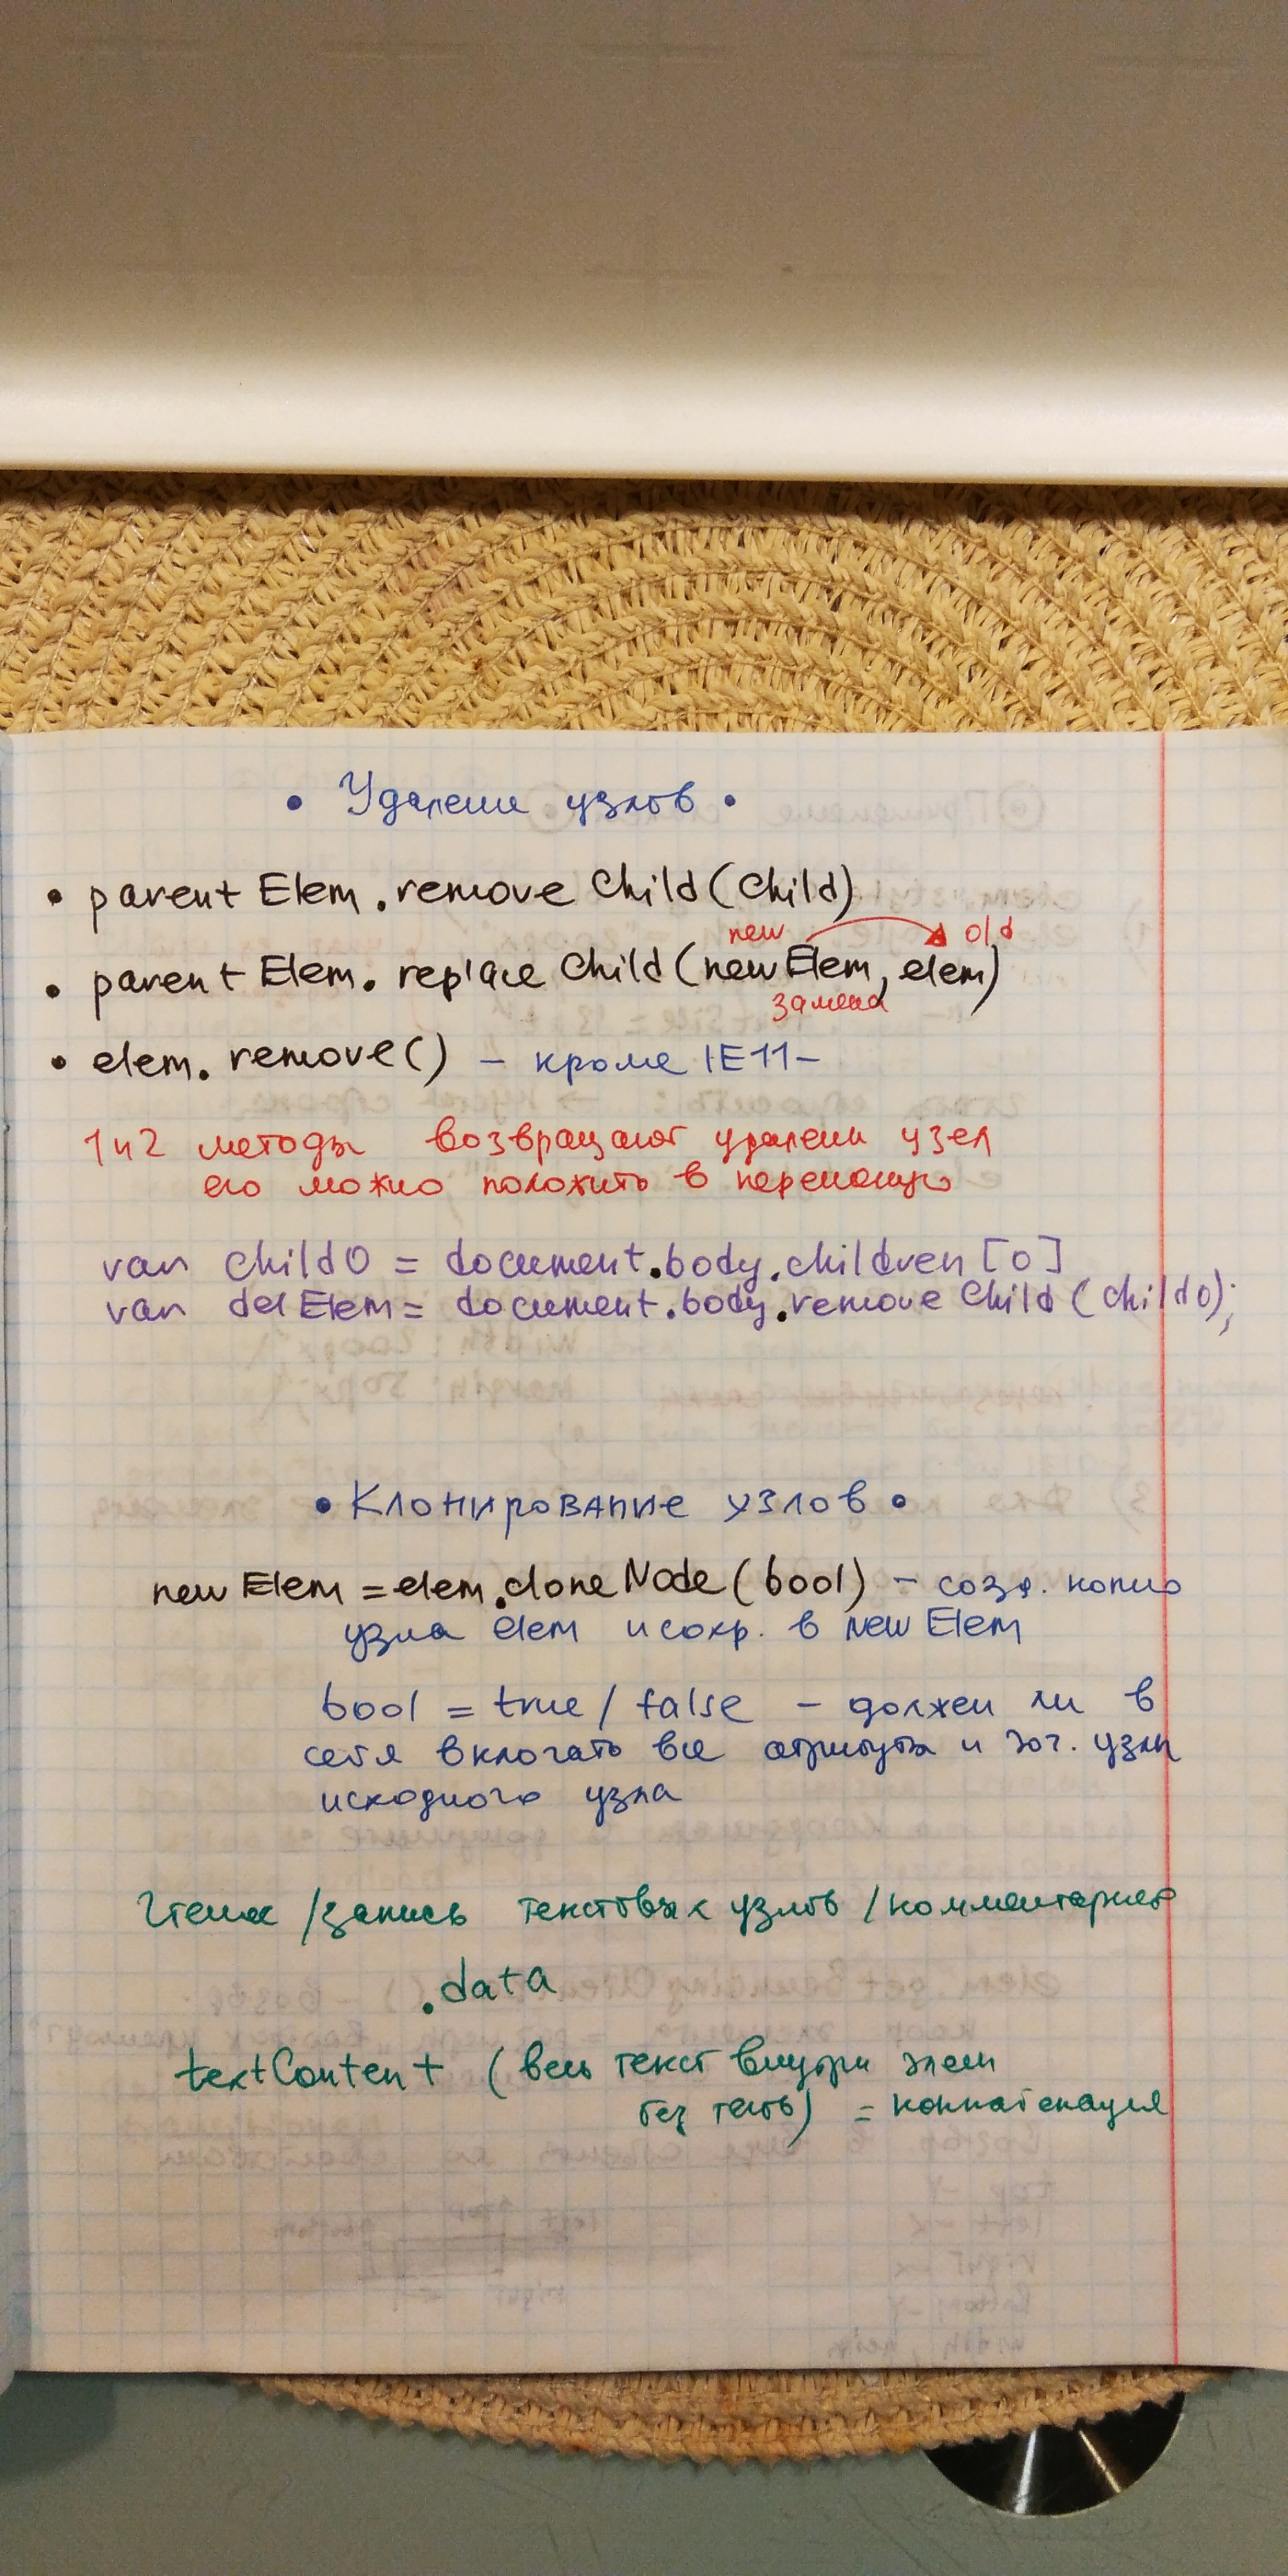 • Удаление узлов •
• parentElem.removeChild(child)
new old
• parentElem.replaceChild(newElem, elem)
замена
• elem.remove() – кроме IE11 –
1 и 2 методы возвращают удален узел
его можно положить в переменную
var child0 = document.body.children[0]
var delElem = document.body.removeChild(child0);
• Клонирование узлов •
newElem = elem.cloneNode(bool) – созд. копию
узла elem и сохр. в newElem
bool = true / false – должен ли в
себя включать все атрибуты и доч. узлы
исходного узла
Чтение / запись текстовых узлов / комментариев
.data
textContent (весь текст внутри элем
без тегов) = конкатенация